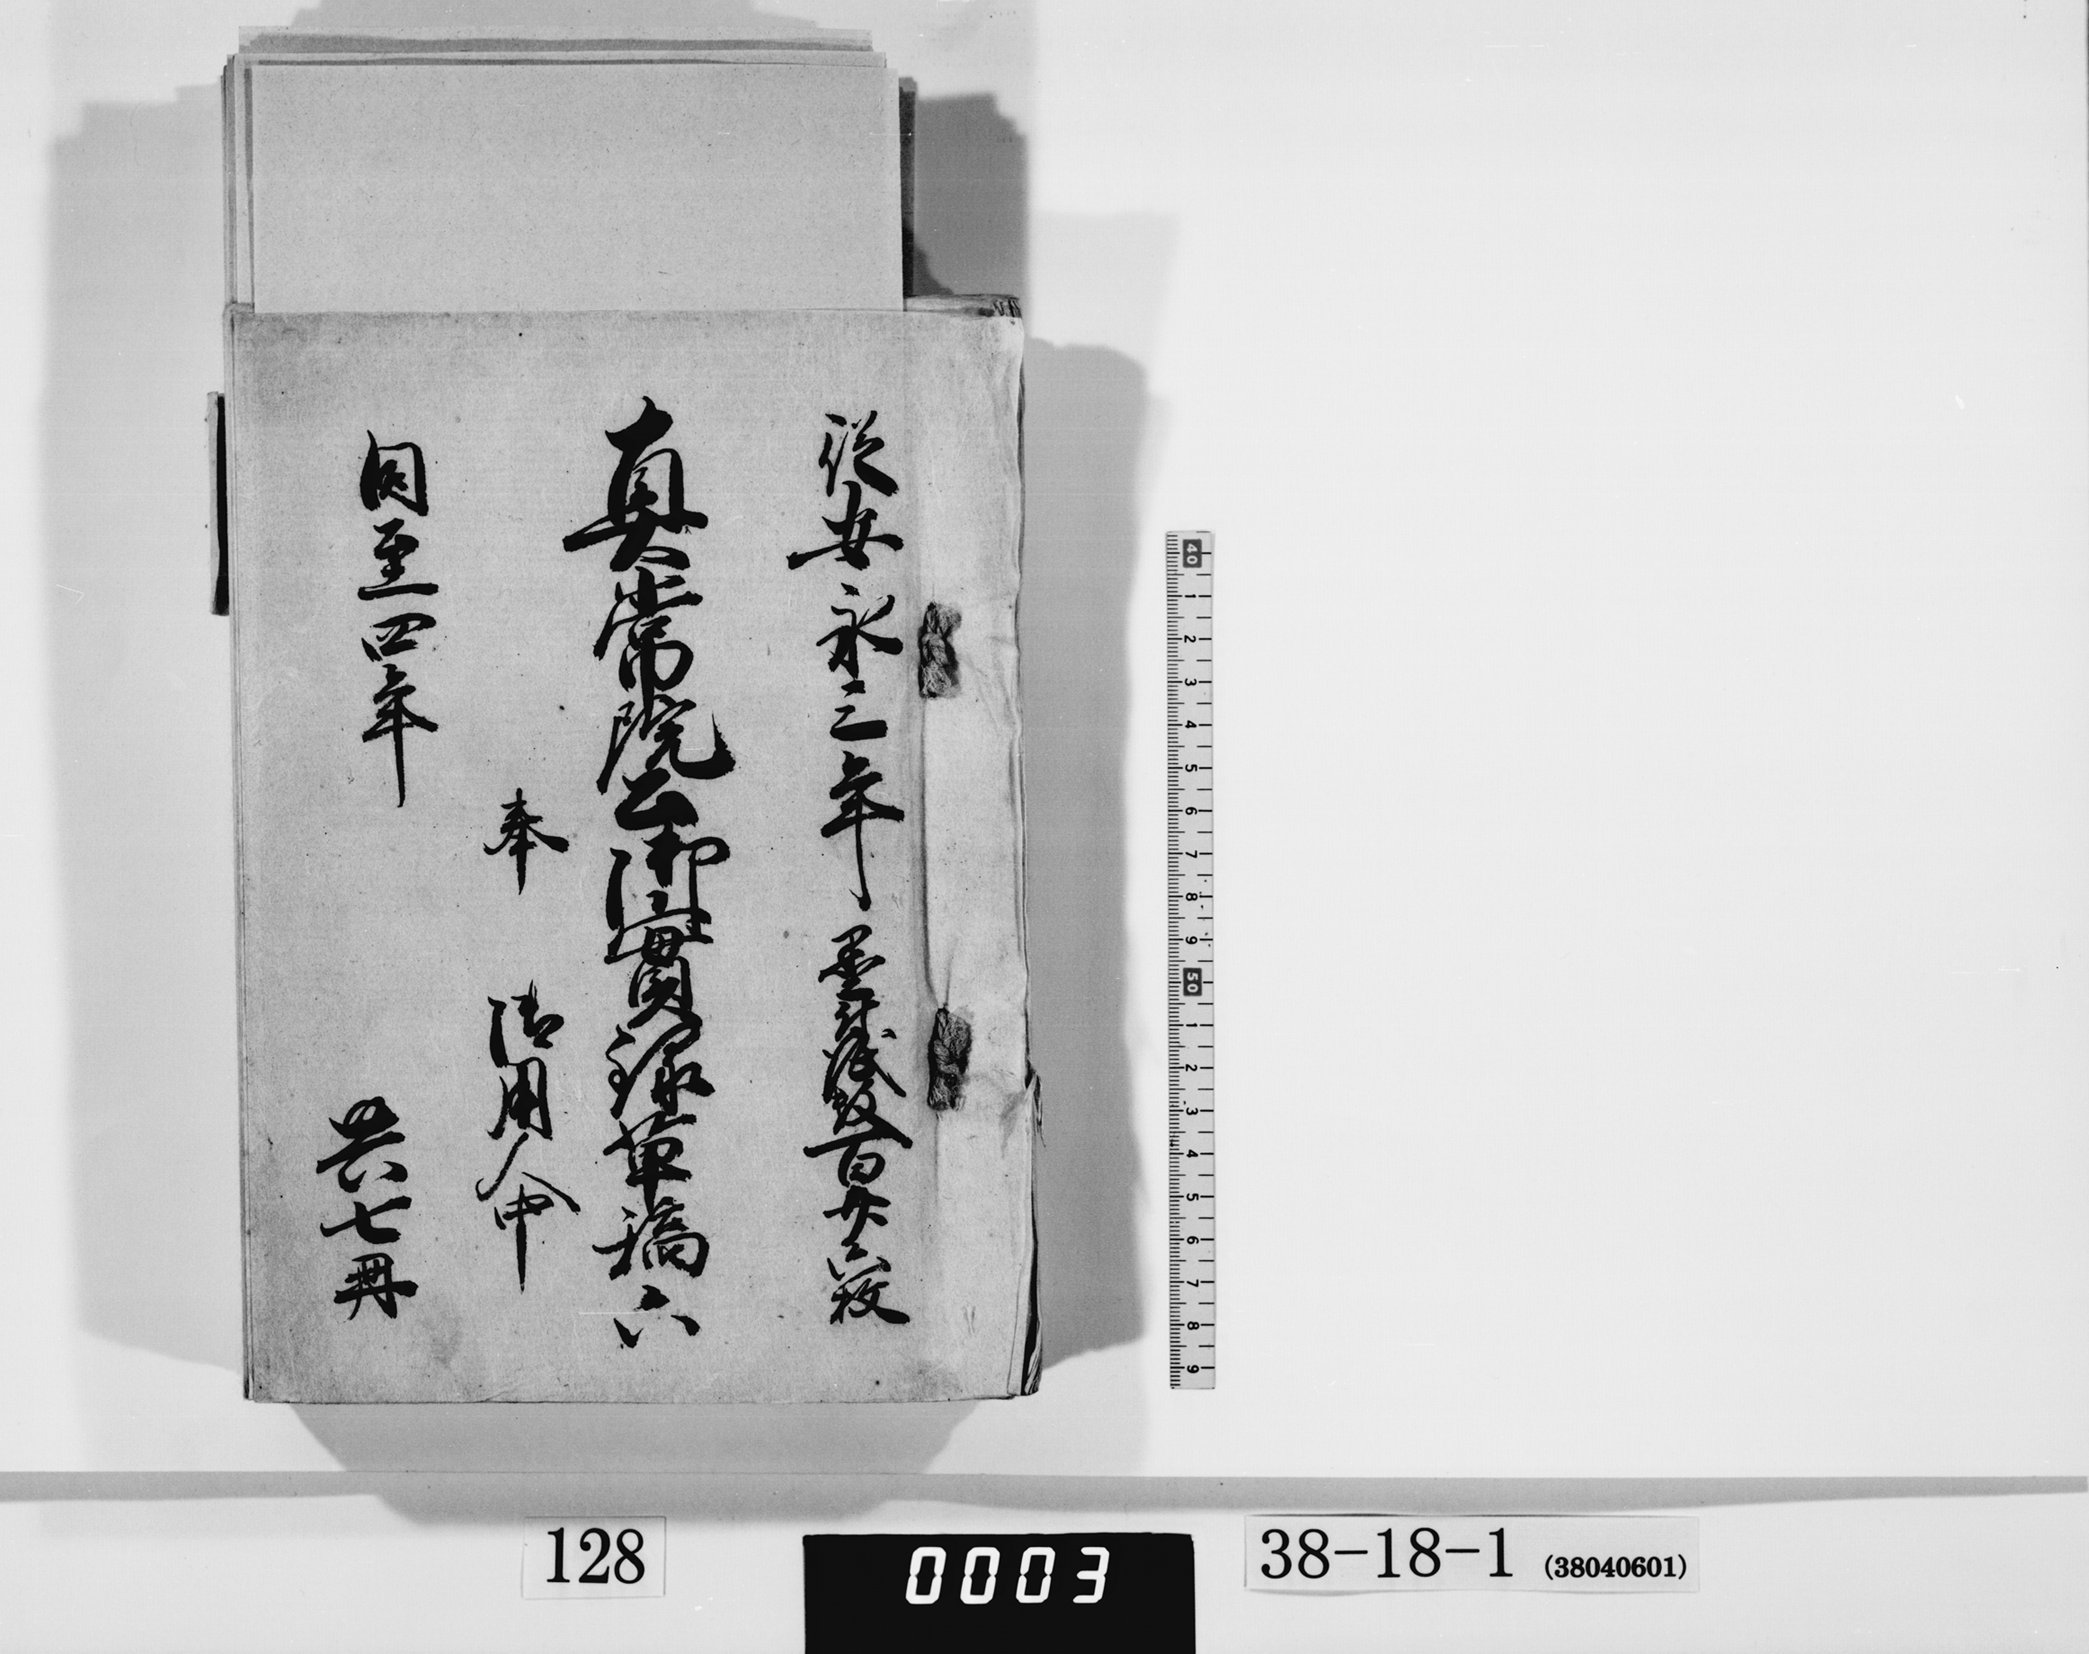 従安永三年 墨付紙数百廿六枚
真常院公御實録草稿 六
奉 御用人中
同至四年 共七冊
40 1 2 3 4 5 6 7 8 9 50 1 2 3 4 5 6 7 8 9
128
0003
38-18-1 (38040601)